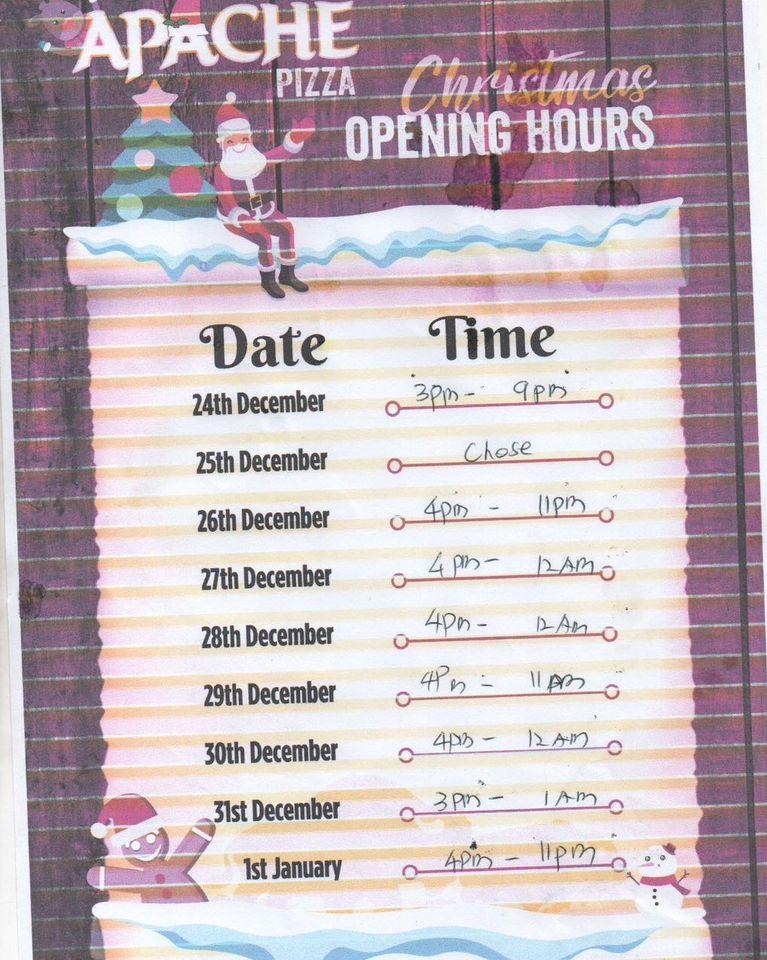 APACHE
PIZZA
Christmas
OPENING HOURS
Date Time
24th December 3pm - 9pm
25th December Chose
26th December 4pm - 11pm
27th December 4pm - 12Am
28th December 4pm - 12Am
29th December 4Pm - 11pm
30th December 4pm - 12Am
31st December 3pm - 1Am
1st January 4pm - 11pm